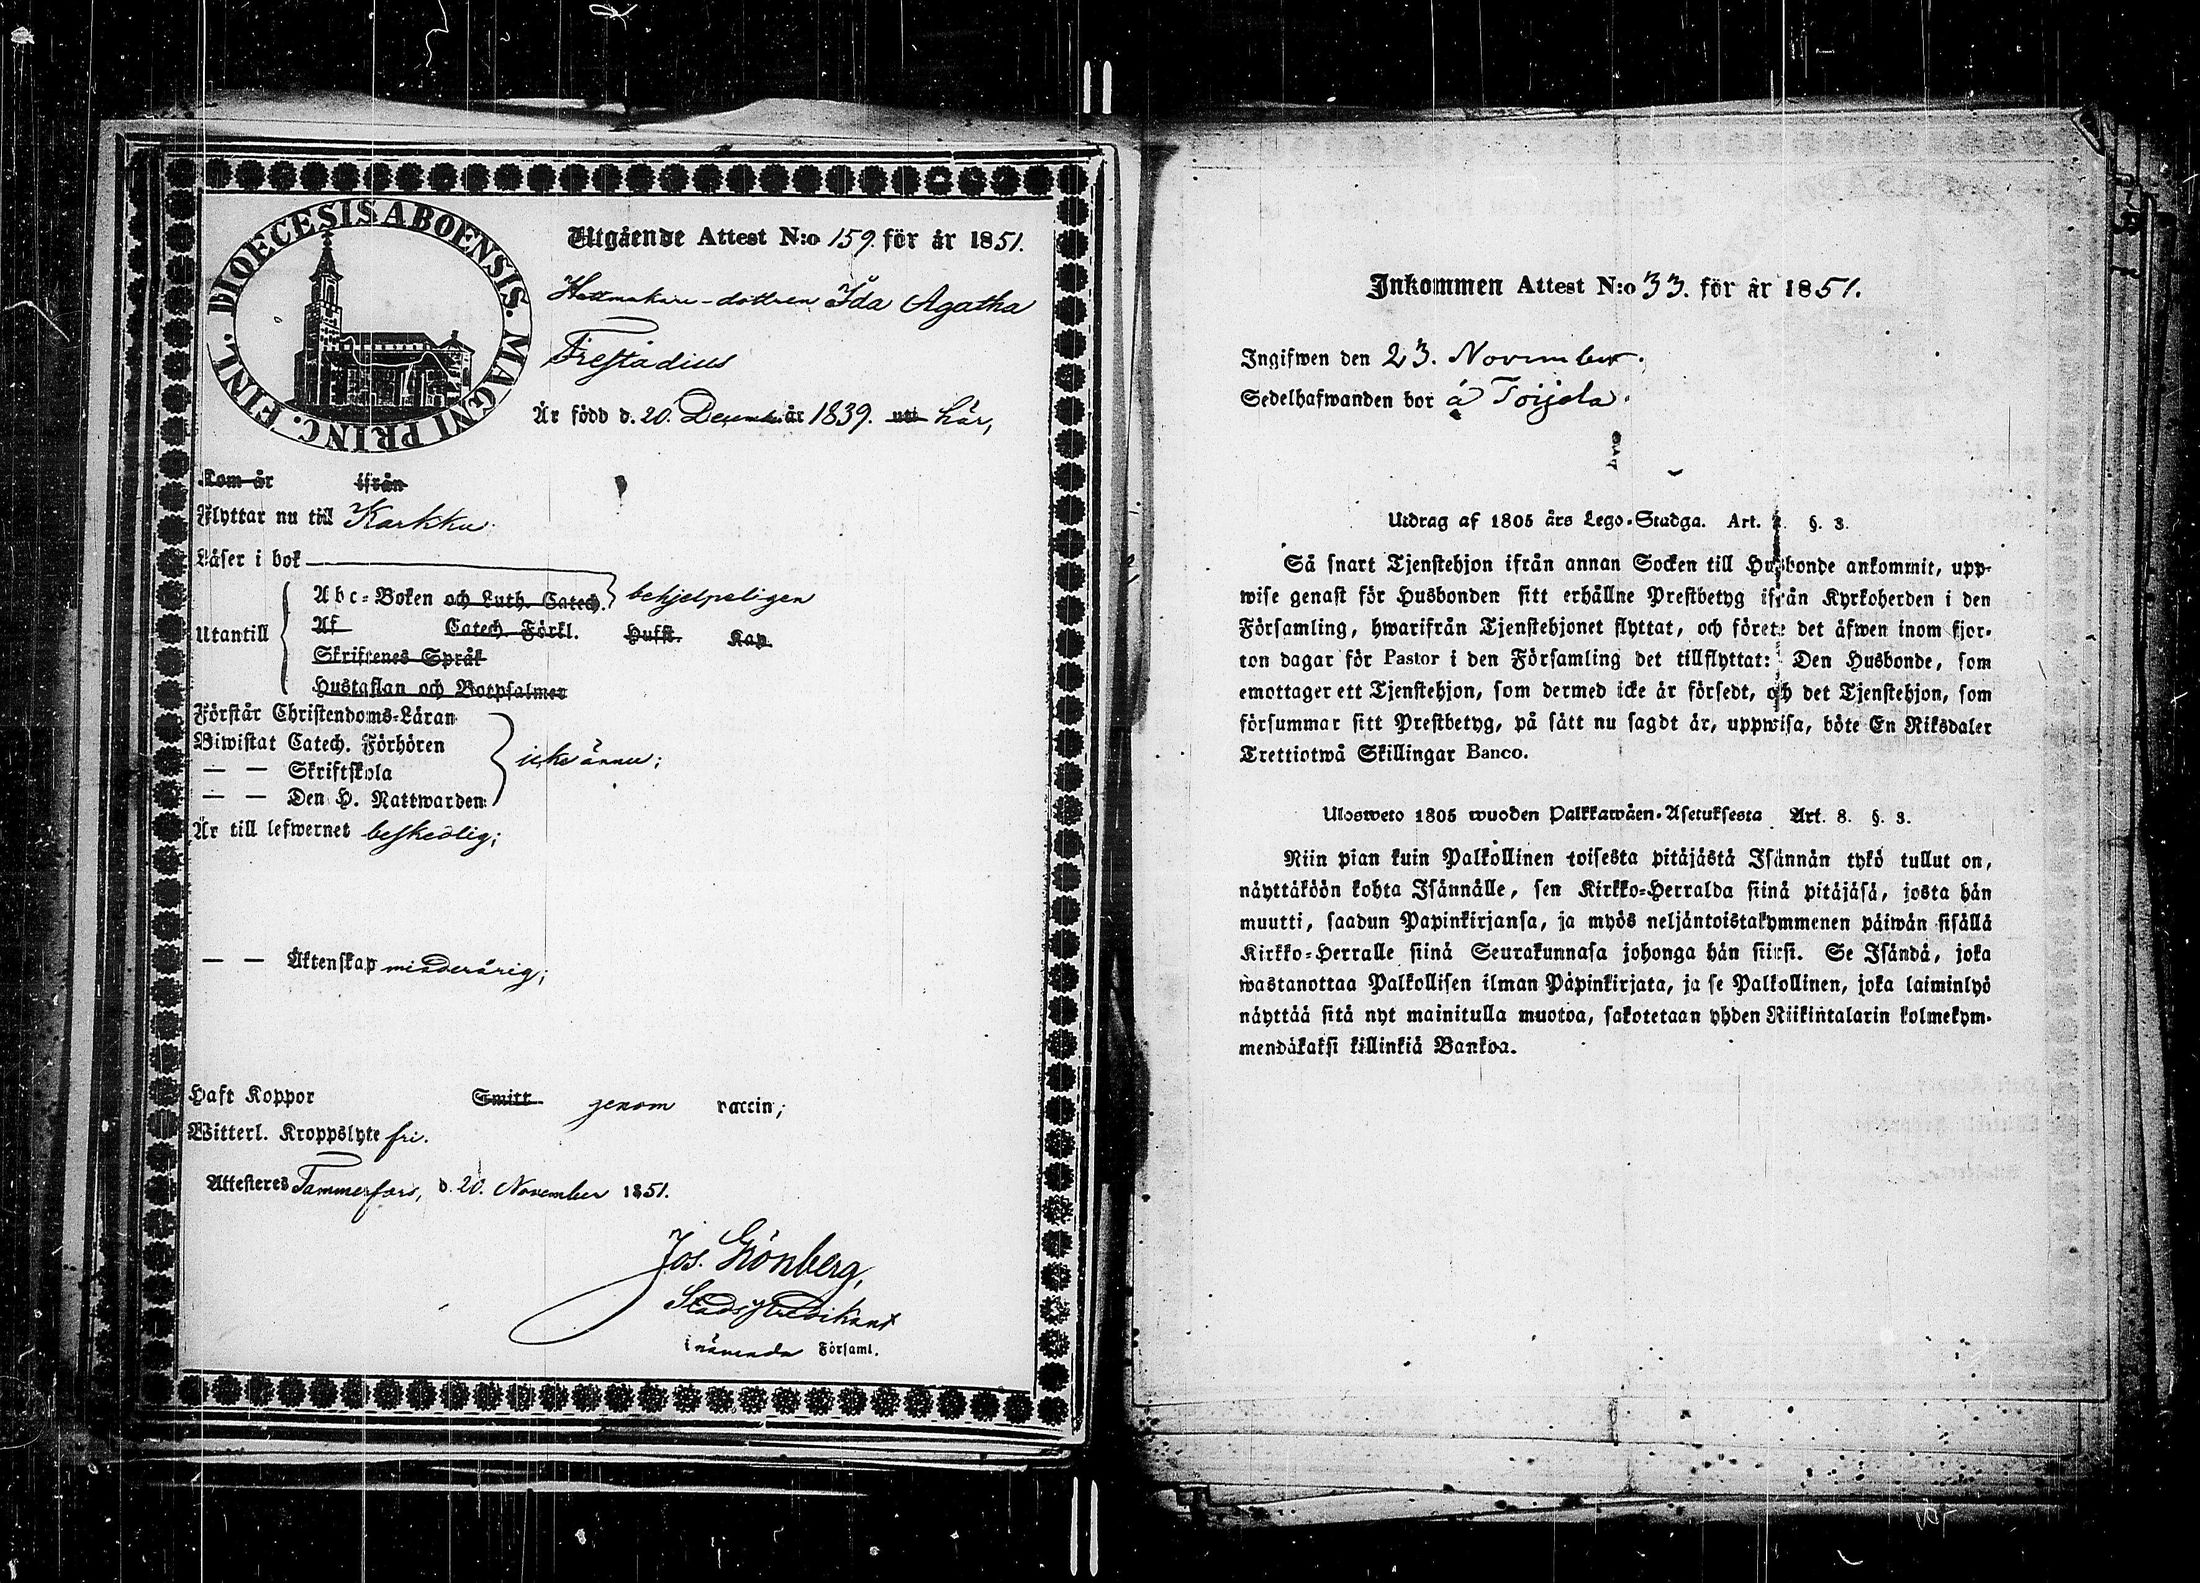 DIOECESIS ABOENSIS. MAGNI PRINC. FINL.
Utgående Attest N:o 159. för år 1851.
Hattmakare-dottren Ida Agatha
Frestadius
Är född d. 20. December år 1839. uti här,
Kom år ifrån
Flyttar nu till Karkku.
Läser i bok
Utantill
Abc-Boken och Luth. Catech. behjelpeligen
Af Catech. Förkl. Husst. Kap
Skriftenes Språk
Hustaflan och Botpsalmer
Förstår Christendoms-Läran
Biwistat Catech. Förhören
— — Skriftskola
— — Den H. Nattwarden
icke ännu;
Är till lefwernet beskedlig;
— — Äktenskap minderårig;
Haft Koppor Smitt genom vaccin;
Witterl. Kroppslyte fri.
Attesteres Tammerfors, d. 20. November 1851.
Jos. Grönberg,
Stadspredikant
i nämnda Församl.
Inkommen Attest N:o 33. för år 1851.
Ingifwen den 23. November.
Sedelhafwanden bor å Toijola.
Utdrag af 1805 års Lego-Stadga. Art. §. 3.
Så snart Tjenstehjon ifrån annan Socken till Husbonde ankommit, upp-
wise genast för Husbonden sitt erhållne Prestbetyg ifrån Kyrkoherden i den
Församling, hwarifrån Tjenstehjonet flyttat, och förete det äfwen inom fjor-
ton dagar för Pastor i den Församling det tillflyttat: Den Husbonde, som
emottager ett Tjenstehjon, som dermed icke är försedt, och det Tjenstehjon, som
försummar sitt Prestbetyg, på sätt nu sagdt är, uppwisa, böte En Riksdaler
Trettiotwå Skillingar Banco.
Ulosweto 1805 wuoden Palkkawäen-Asetuksesta Art. 8. §. 3.
Niin pian kuin Palkollinen toisesta pitäjästä Isännän tykö tullut on,
näyttäköön kohta Isännälle, sen Kirkko-Herralda siinä pitäjäsä, josta hän
muutti, saadun Papinkirjansa, ja myös neljäntoistakymmenen päiwän sisällä
Kirkko-Herralle siinä Seurakunnasa johonga hän siirsi. Se Isändä, joka
wastanottaa Palkollisen ilman Päpinkirjata, ja se Palkollinen, joka laiminlyö
näyttää sitä nyt mainitulla muotoa, sakotetaan yhden Riikintalarin kolmekym-
mendäkaksi killinkiä Bankoa.